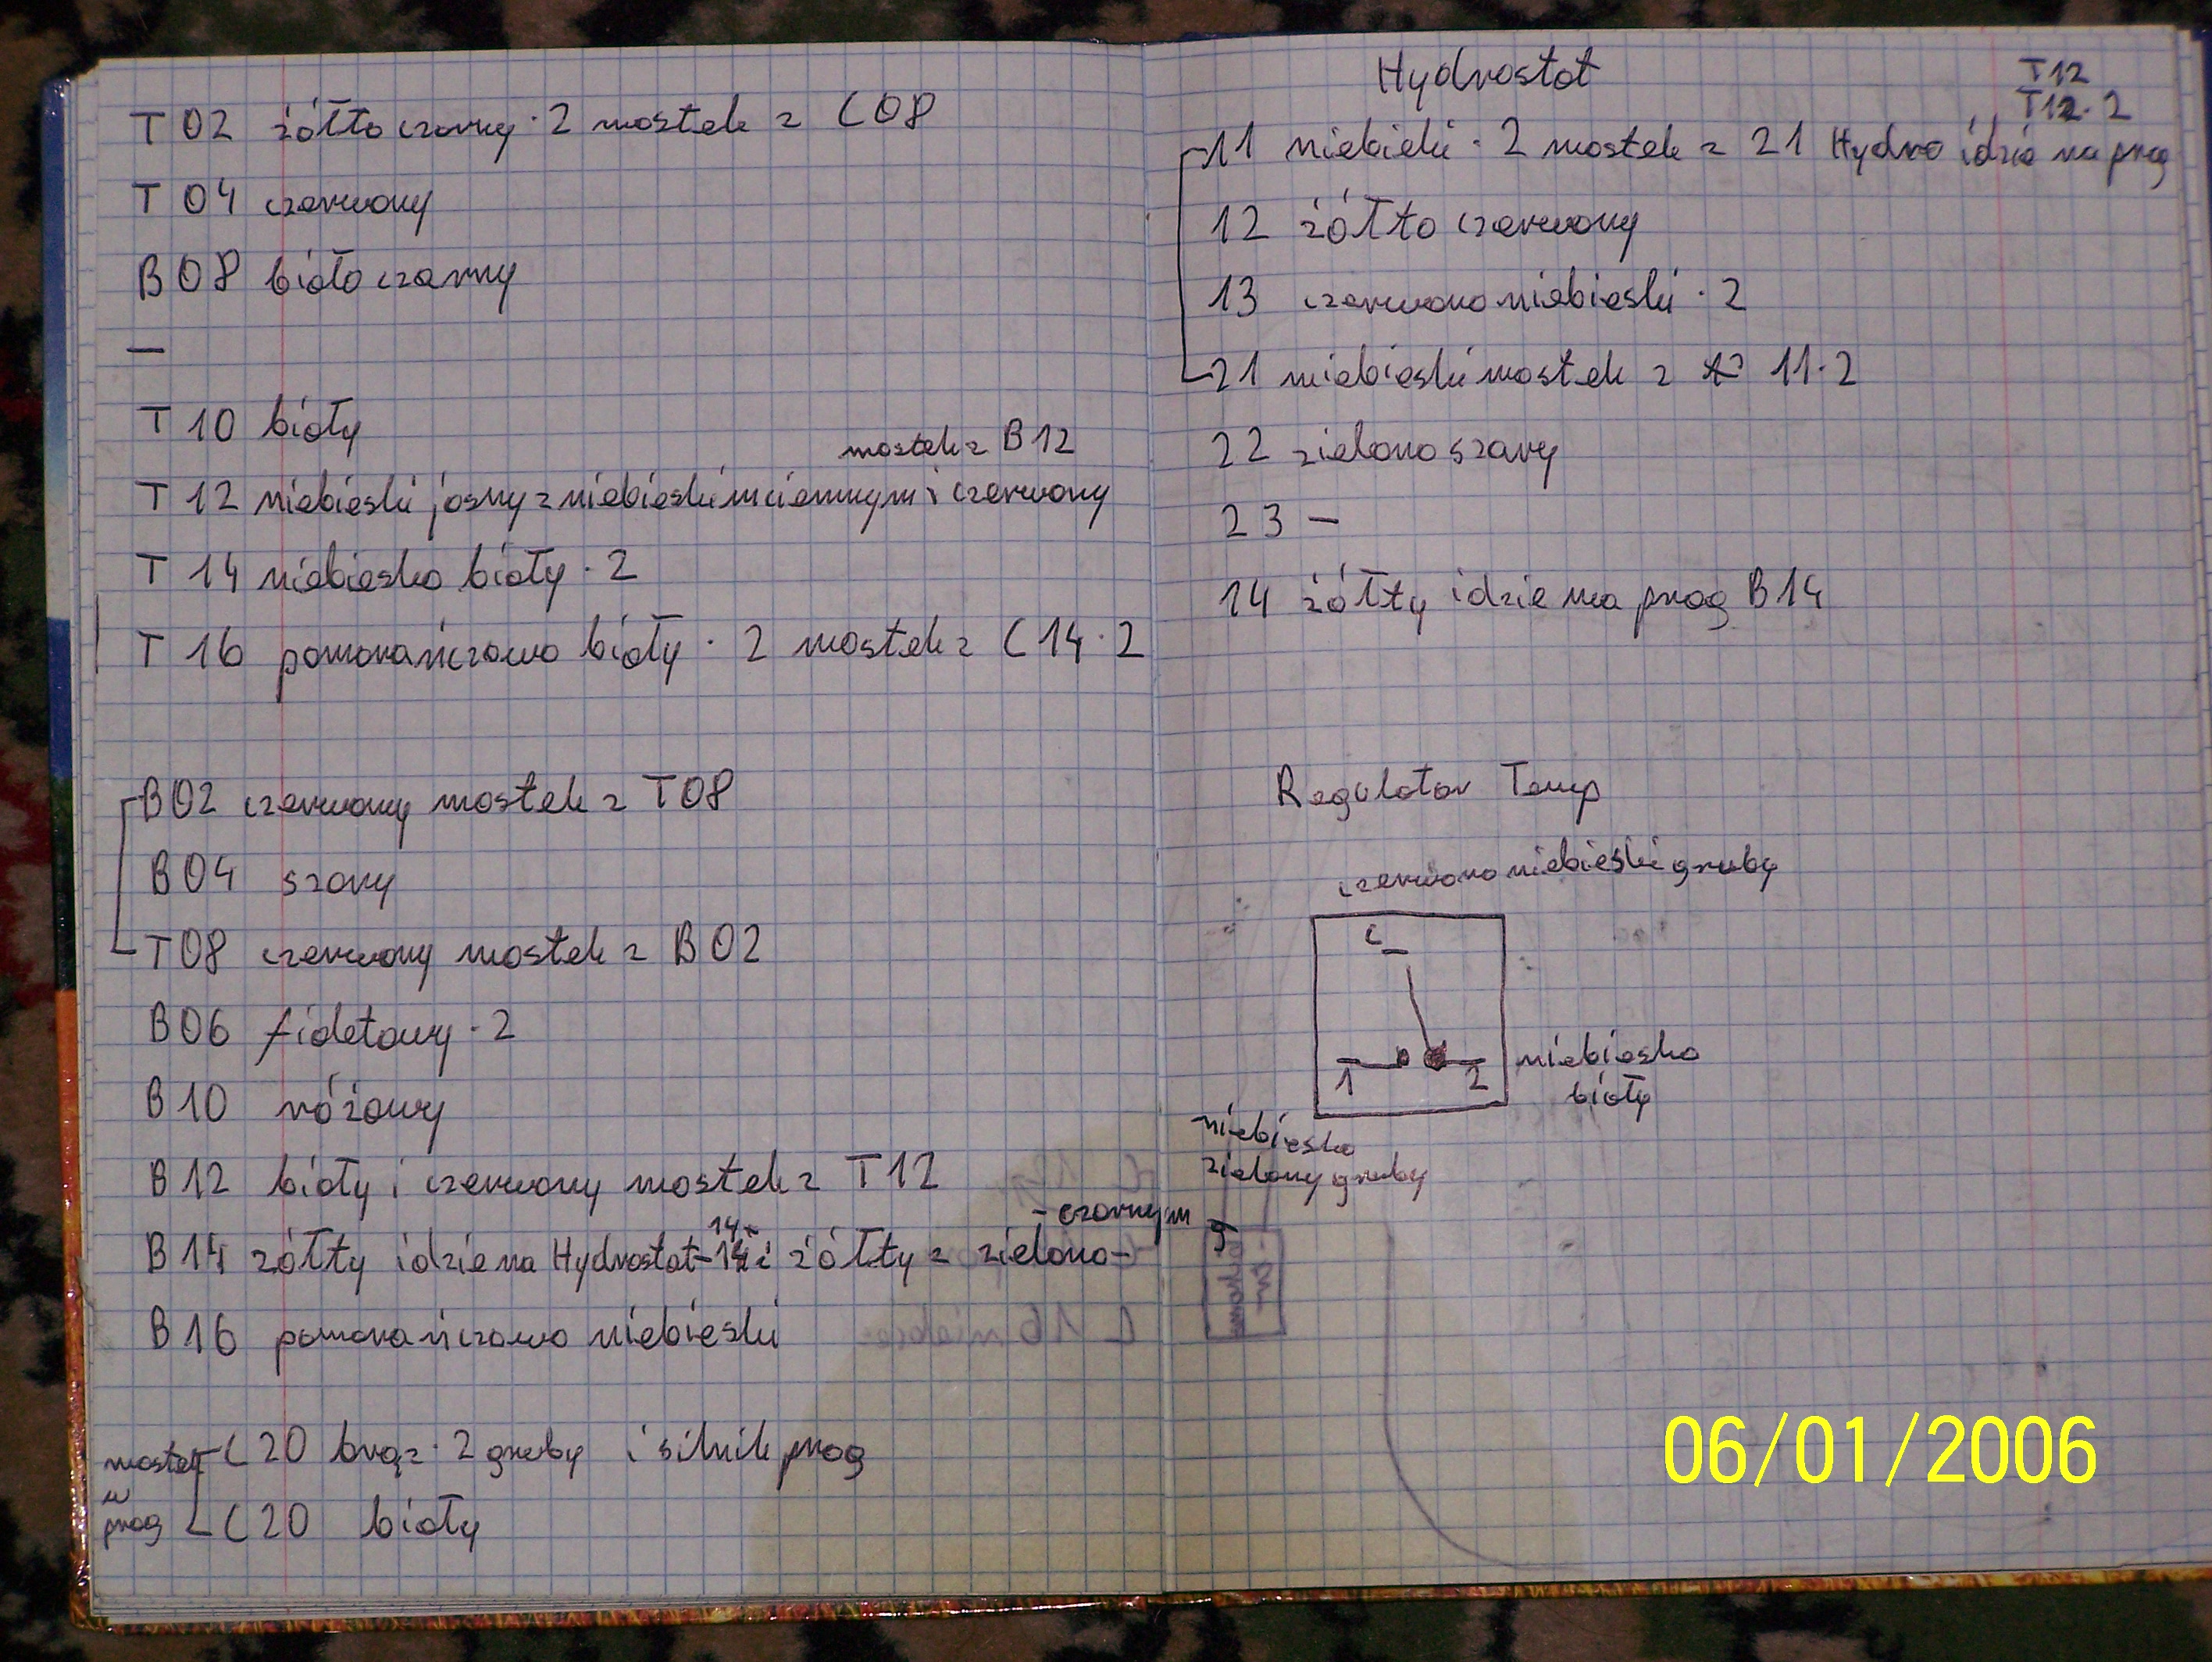 T 02 żółto czarny · 2 mostek z C08
T 04 czerwony
B 08 biało czarny
—
T 10 biały
mostek z B12
T 12 niebieski jasny z niebieskim ciemnym i czerwony
T 14 niebiesko biały · 2
T 16 pomorańczowo biały · 2 mostek z C14·2
B02 czerwony mostek z T08
B04 szary
T08 czerwony mostek z B02
B06 fioletowy · 2
B10 różowy
B12 biały i czerwony mostek z T12
- czarnym
14
B14 żółty idzie na Hydrostat- i żółty z zielono-
B16 pomorańczowo niebieski
mostek C20 brąz · 2 gruby i silnik prog
w
prog C20 biały
Hydrostat
T12
T12·2
11 niebieki · 2 mostek z 21 Hydro idzie na prog
12 żółto czerwony
13 czerwono niebieski · 2
21 niebieski mostek z 11·2
22 zielono szary
23 —
14 żółty idzie na prog B14
Regulator Temp
czerwono niebieski gruby
C
1 2
niebiesko
biały
niebiesko
zielony gruby
06/01/2006